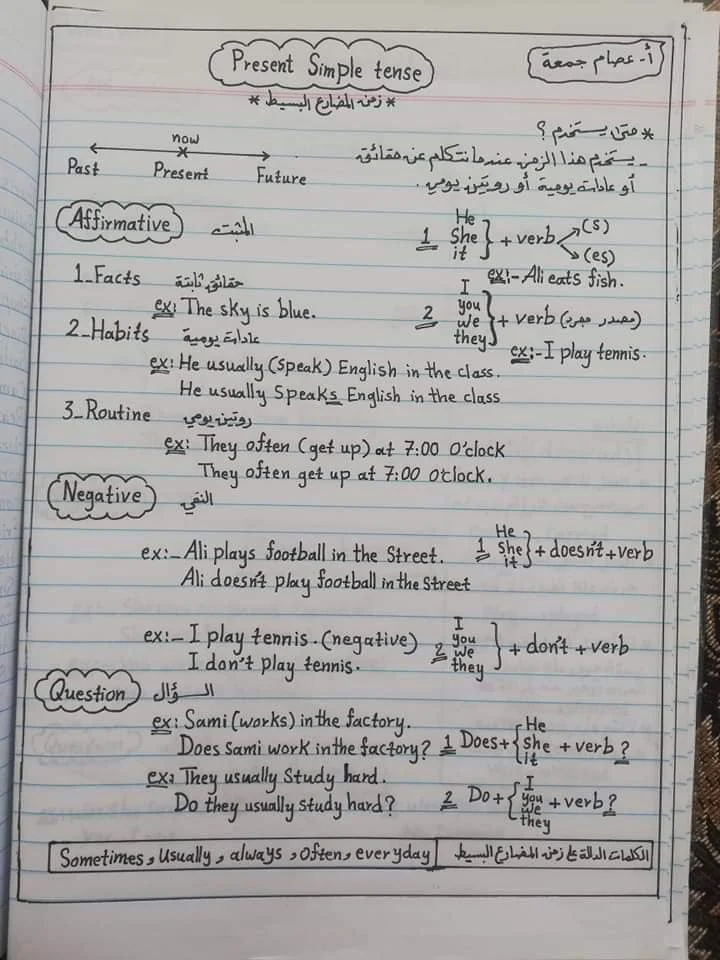 Present Simple tense
أ- عصام جمعة
* زمن المضارع البسيط *
* متى يستخدم ؟
- يستخدم هذا الزمن عندما نتكلم عن حقائق
أو عادات يومية أو روتين يومي.
now
Past Present Future
Affirmative المثبت
1 He She it } + verb (s) (es)
ex:- Ali eats fish.
1_Facts حقائق ثابتة
ex: The sky is blue.
2 I you we they } + verb (مصدر مجرد)
ex:- I play tennis.
2_Habits عادات يومية
ex: He usually (speak) English in the class.
He usually Speaks English in the class
3_Routine روتين يومي
ex: They often (get up) at 7:00 O'clock
They often get up at 7:00 O'clock.
Negative النفي
ex:_ Ali plays football in the Street.
Ali doesn't play football in the Street
1 He she it } + doesn't + verb
ex:_ I play tennis. (negative)
I don't play tennis.
2 I you we they } + don't + verb
Question السؤال
ex: Sami (works) in the factory.
Does Sami work in the factory?
1 Does + { He she it + verb ?
ex: They usually Study hard.
Do they usually study hard?
2 Do + { I you we they + verb ?
Sometimes, usually, always, often, everyday
الكلمات الدالة على زمن المضارع البسيط